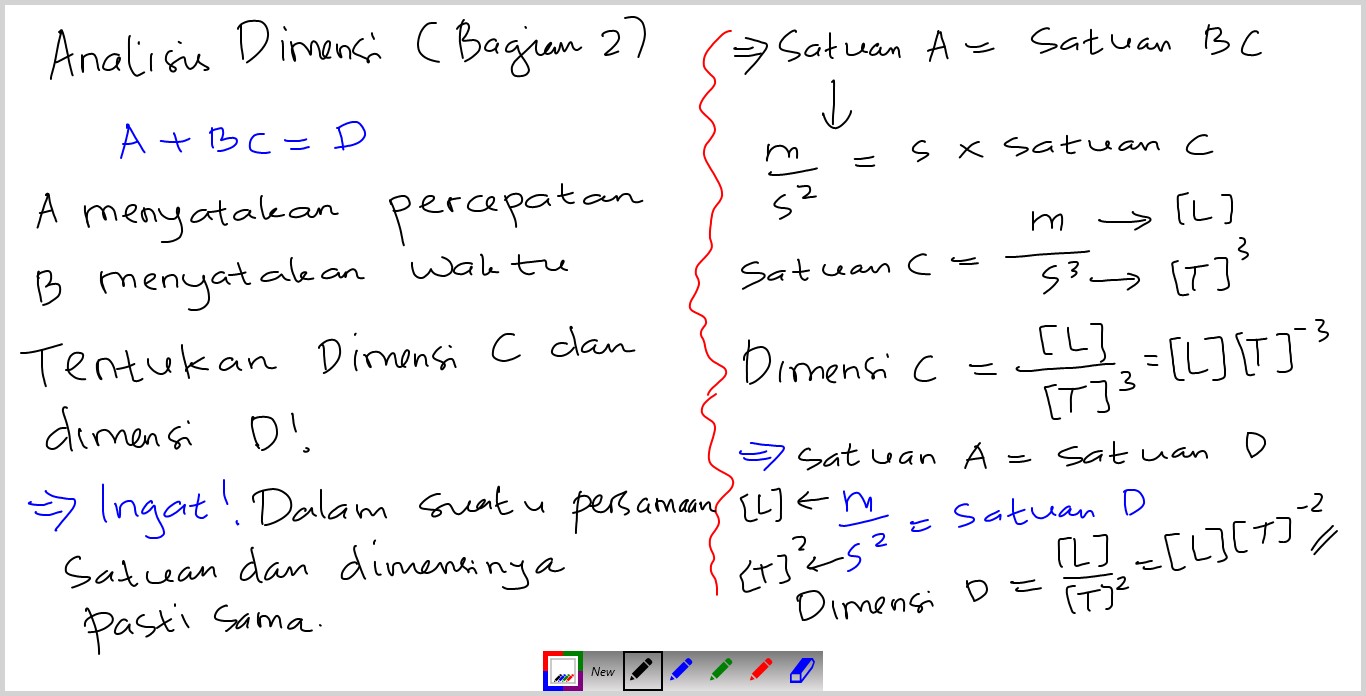 Analisis Dimensi (Bagian 2)
A + BC = D
A menyatakan percepatan
B menyatakan waktu
Tentukan Dimensi C dan
dimensi D!
⇒ Ingat! Dalam suatu persamaan
Satuan dan dimensinya
pasti sama.
⇒ Satuan A = Satuan BC
↓
m/s² = s × satuan C
Satuan C = m/s³
m → [L]
s³ → [T]³
Dimensi C = [L]/[T]³ = [L][T]⁻³
⇒ Satuan A = Satuan D
[L] ← m/s² = Satuan D
[T]² ← s²
Dimensi D = [L]/[T]² = [L][T]⁻² //
New